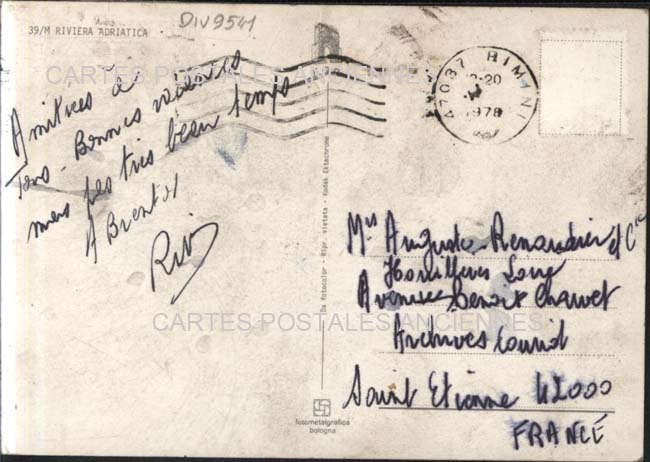 DIV9541
39/M RIVIERA ADRIATICA
47037 RIMINI
-20
1978
CARTES POSTALES ANCIENNES
Amitiés à
Tous - Bonnes vacances
mais pas très beau temps
A Bientôt
Da fotocolor - Ripr. vietata - Kodak Ektachrome
Auguste
Avenue Benoit Charvet
Archives
Saint Etienne 42000
FRANCE
CARTES POSTALES ANCIENNES
fotometalgrafica
bologna